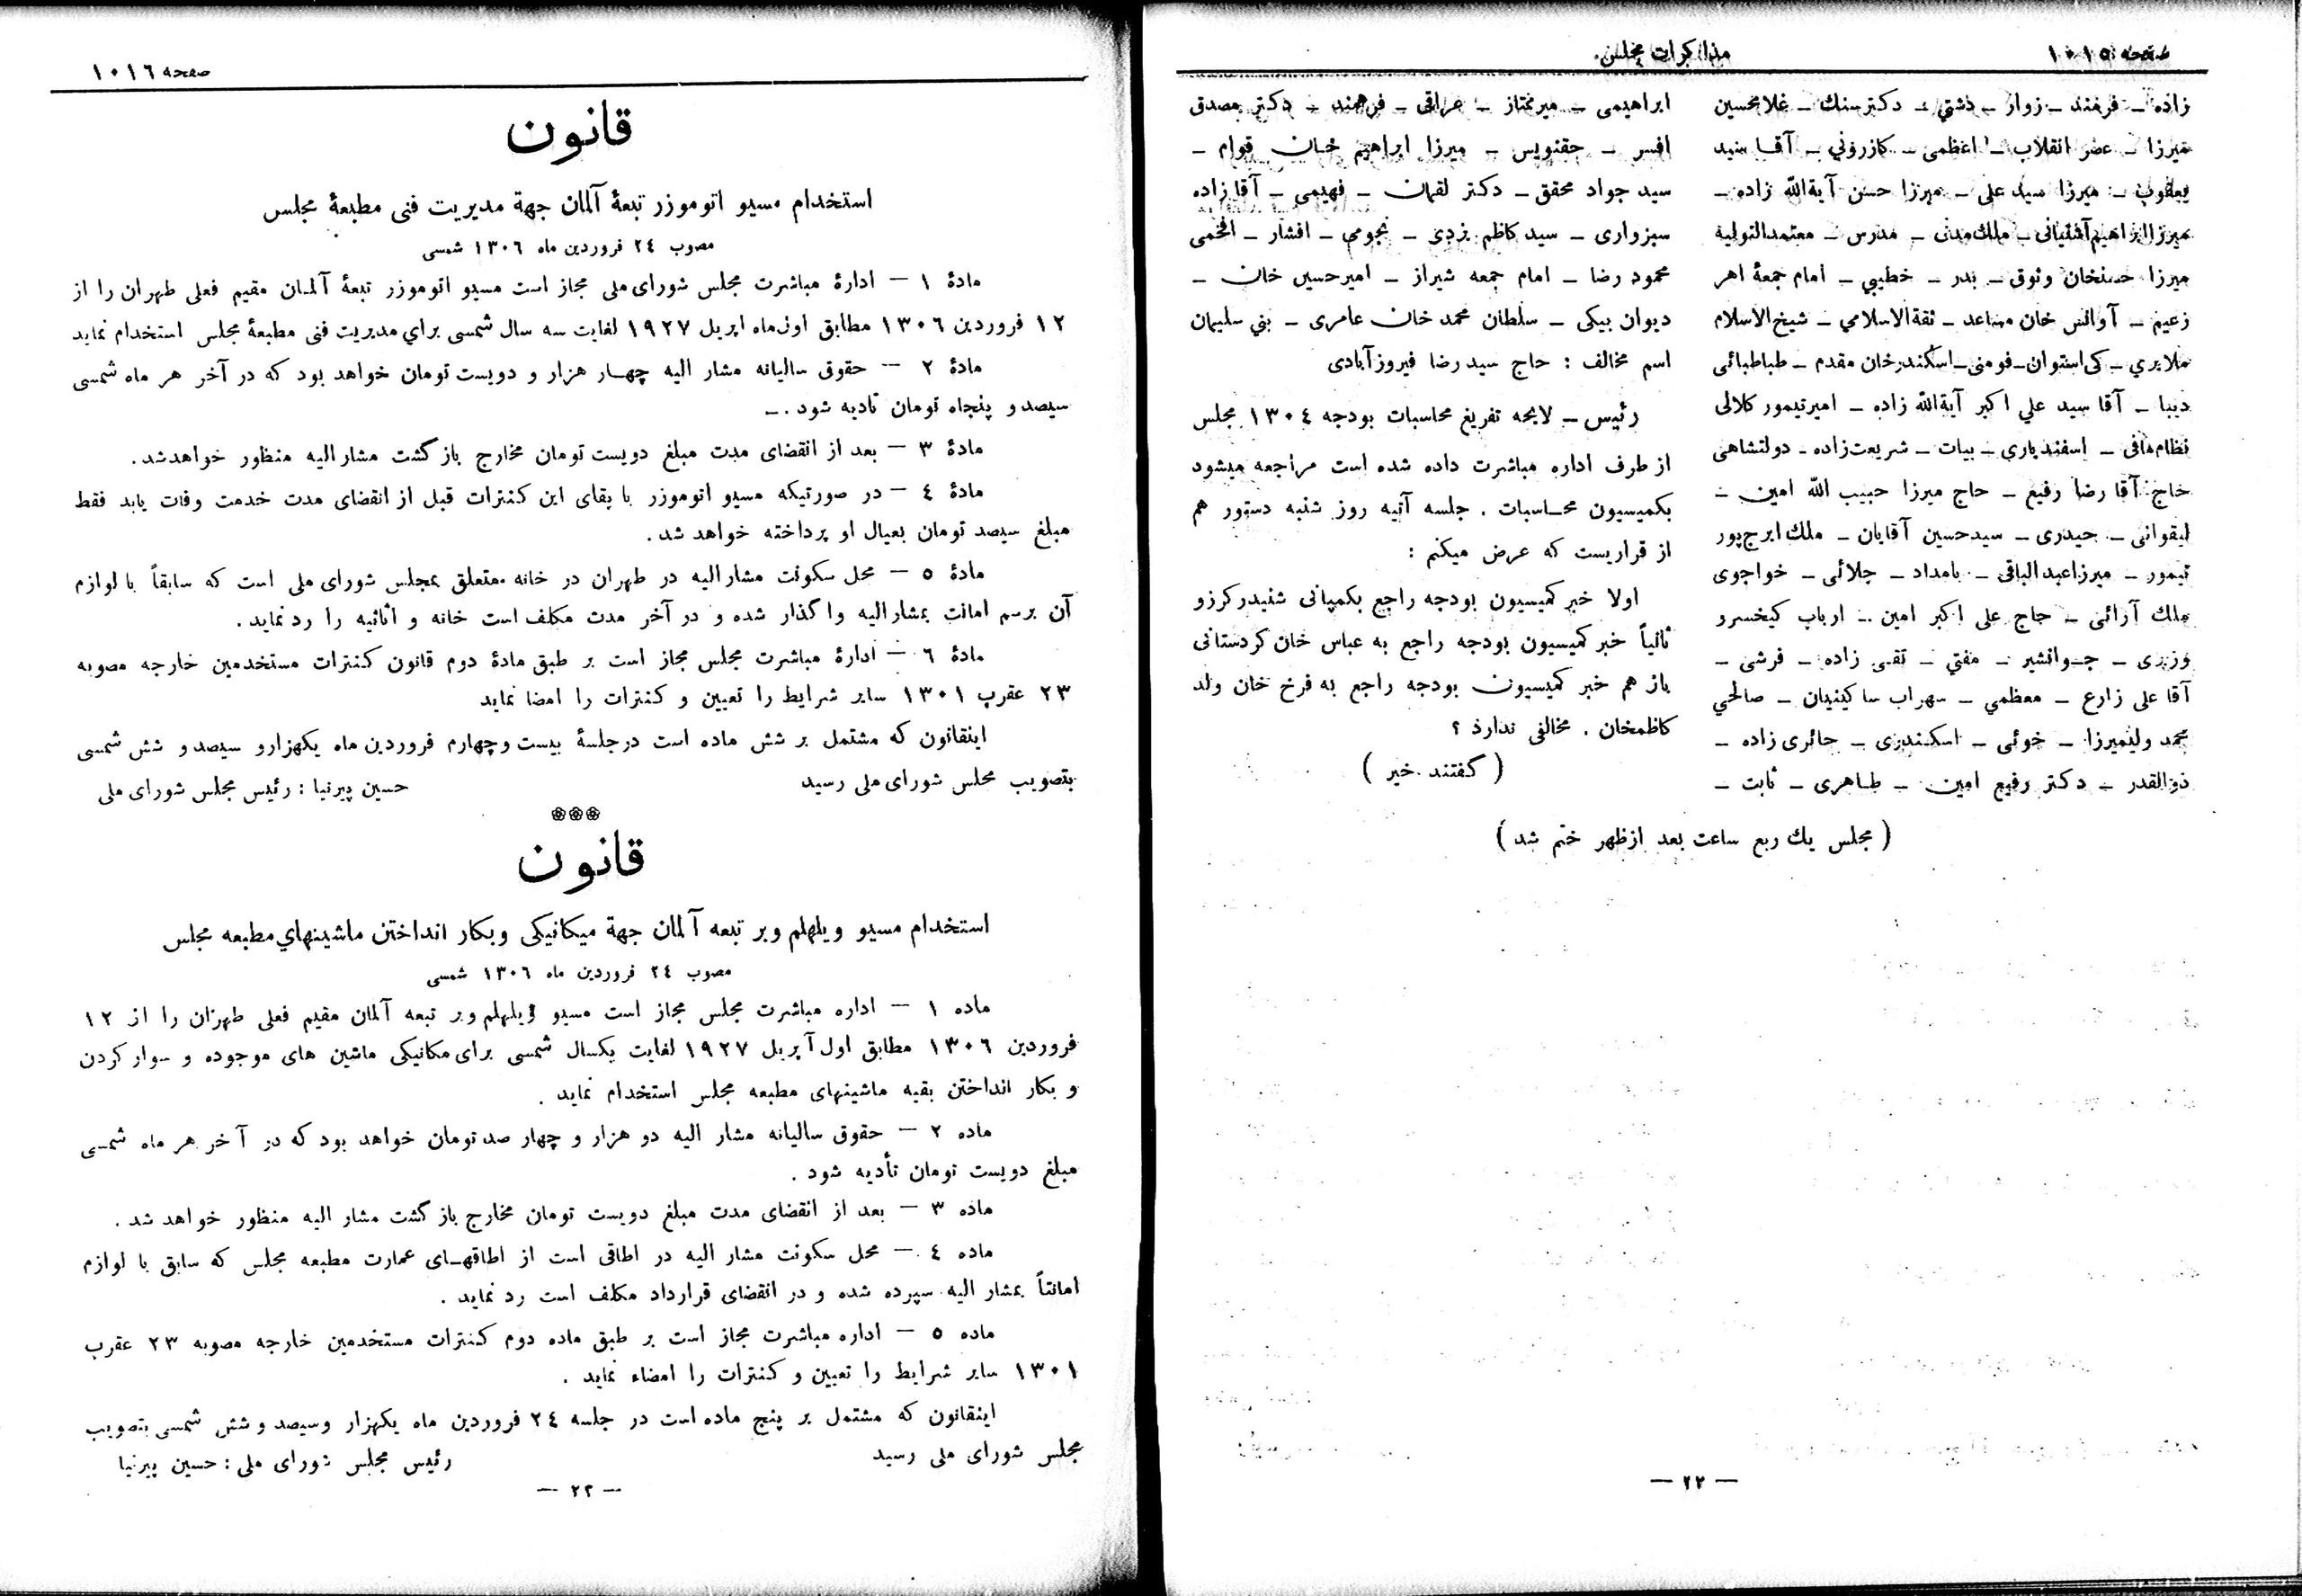 صفحه ۱۰۱۵
مذاکرات مجلس
زاده ـ فرهمند ـ زوار ـ دشتي ـ دکتر سنك ـ غلامحسین
میرزا ـ عصر انقلاب ـ اعظمی ـ کازروني ـ آقا سید
یعقوب ـ میرزا سید علی ـ میرزا حسن آیةالله زاده ـ
میرزا ابراهیم آشتیانی ـ ملك مدنی ـ مدرس ـ معتمدالتولیه
میرزا حسنخان وثوق ـ بدر ـ خطیبي ـ امام جمعهٔ اهر
زعیم ـ آوانس خان مساعد ـ ثقةالاسلامي ـ شیخ‌الاسلام
ملایري ـ کی‌استوان ـ فومنی ـ اسکندرخان مقدم ـ طباطبائی
دیبا ـ آقا سید علي اکبر آیةالله زاده ـ امیرتیمور کلالی
نظام‌مافی ـ اسفندیاري ـ بیات ـ شریعت‌زاده ـ دولتشاهی
حاج آقا رضا رفیع ـ حاج میرزا حبیب الله امین ـ
لیقوانی ـ حیدری ـ سیدحسین آقایان ـ ملك ایرج‌پور
تیمور ـ میرزا عبدالباقی ـ بامداد ـ جلائی ـ خواجوی
ملك آرائی ـ حاج علی اکبر امین ـ ارباب کیخسرو
وزیری ـ جـوانشیر ـ مفتي ـ تقی زاده ـ فرشی ـ
آقا علی زارع ـ معظمي ـ سهراب ساکینیان ـ صالحي
محمد ولیمیرزا ـ خوئی ـ اسکـندری ـ حائری زاده ـ
ذوالقدر ـ دکتر رفیع امین ـ طـاهری ـ ثابت ـ
ابراهیمی ـ میرممتاز ـ عراقی ـ فرهمند ـ دکتر مصدق
افسر ـ حقنویس ـ میرزا ابراهیم خـان قوام ـ
سید جواد محقق ـ دکتر لقمان ـ فهیمی ـ آقا زاده
سبزواری ـ سید کاظم یزدی ـ نجومي ـ افشار ـ افخمی
محمود رضا ـ امام جمعه شیراز ـ امیرحسین خان ـ
دیوان بیگی ـ سلطان محمد خان عامری ـ بني سلیمان
اسم مخالف : حاج سید رضا فیروزآبادی
رئیس ـ لایحه تفریغ محاسبات بودجه ۱۳۰٤ مجلس
از طرف اداره مباشرت داده شده است مراجعه میشود
بکمیسیون محـاسبات . جلسه آتیه روز شنبه دستور هم
از قراریست که عرض میکنم :
اولا خبر کمیسیون بودجه راجع بکمپانی شنیدر کرزو
ثانیاً خبر کمیسیون بودجه راجع به عباس خان کردستانی
باز هم خبر کمیسیون بودجه راجع به فرخ خان ولد
کاظمخان . مخالفی ندارد ؟
( گفتند خیر )
( مجلس یك ربع ساعت بعد از ظهر ختم شد )
— ۲۲ —
صفحه ۱۰۱٦
قانون
استخدام مسیو اتوموزر تبعهٔ آلمان جهة مدیریت فنی مطبعهٔ مجلس
مصوب ۲٤ فروردین ماه ۱۳۰٦ شمسی
مادهٔ ۱ — ادارهٔ مباشرت مجلس شورای ملی مجاز است مسیو اتوموزر تبعهٔ آلمـان مقیم فعلی طهران را از
۱۲ فروردین ۱۳۰٦ مطابق اول ماه اپریل ۱۹۲۷ لغایت سه سال شمسی براي مدیریت فنی مطبعهٔ مجلس استخدام نماید
مادهٔ ۲ — حقوق سالیانه مشار الیه چهـار هزار و دویست تومان خواهد بود که در آخر هر ماه شمسی
سیصد و پنجاه تومان تادیه شود . ـ
مادهٔ ۳ — بعد از انقضای مدت مبلغ دویست تومان مخارج باز گشت مشارالیه منظور خواهدشد .
مادهٔ ٤ — در صورتیکه مسیو اتوموزر با بقای این کنترات قبل از انقضای مدت خدمت وفات یابد فقط
مبلغ سیصد تومان بعیال او پرداخته خواهد شد .
مادهٔ ٥ — محل سکونت مشارالیه در طهران در خانه متعلق بمجلس شورای ملی است که سابقاً با لوازم
آن برسم امانت بمشارالیه واگذار شده و در آخر مدت مکلف است خانه و اثاثیه را رد نماید .
مادهٔ ٦ — ادارهٔ مباشرت مجلس مجاز است بر طبق مادهٔ دوم قانون کنترات مستخدمین خارجه مصوبه
۲۳ عقرب ۱۳۰۱ سایر شرایط را تعیین و کنترات را امضا نماید
اینقانون که مشتمل بر شش ماده است درجلسهٔ بیست وچهارم فروردین ماه یکهزارو سیصد و شش شمسی
بتصویب مجلس شورای ملی رسید
حسین پیرنیا : رئیس مجلس شورای ملی
قانون
استخدام مسیو ویلهلم وبر تبعه آلمان جهة میکانیکی و بکار انداختن ماشینهاي مطبعه مجلس
مصوب ۲٤ فروردین ماه ۱۳۰٦ شمسی
ماده ۱ — اداره مباشرت مجلس مجاز است مسیو ویلهلم وبر تبعه آلمان مقیم فعلی طهران را از ۱۲
فروردین ۱۳۰٦ مطابق اول آپریل ۱۹۲۷ لغایت یکسال شمسی برای مکانیکی ماشین های موجوده و سوار کردن
و بکار انداختن بقیه ماشینهای مطبعه مجلس استخدام نماید .
ماده ۲ — حقوق سالیانه مشار الیه دو هزار و چهار صد تومان خواهد بود که در آخر هر ماه شمسی
مبلغ دویست تومان تأدیه شود .
ماده ۳ — بعد از انقضای مدت مبلغ دویست تومان مخارج باز گشت مشار الیه منظور خواهد شد .
ماده ٤ — محل سکونت مشار الیه در اطاقی است از اطاقهـای عمارت مطبعه مجلس که سابق با لوازم
امانتاً بمشار الیه سپرده شده و در انقضای قرارداد مکلف است رد نماید .
ماده ٥ — اداره مباشرت مجاز است بر طبق ماده دوم کنترات مستخدمین خارجه مصوبه ۲۳ عقرب
۱۳۰۱ سایر شرایط را تعیین و کنترات را امضاء نماید .
اینقانون که مشتمل بر پنج ماده است در جلسه ۲٤ فروردین ماه یکهزار وسیصد و شش شمسی بتصویب
مجلس شورای ملی رسید
رئیس مجلس شورای ملی : حسین پیرنیا
— ۲۲ —